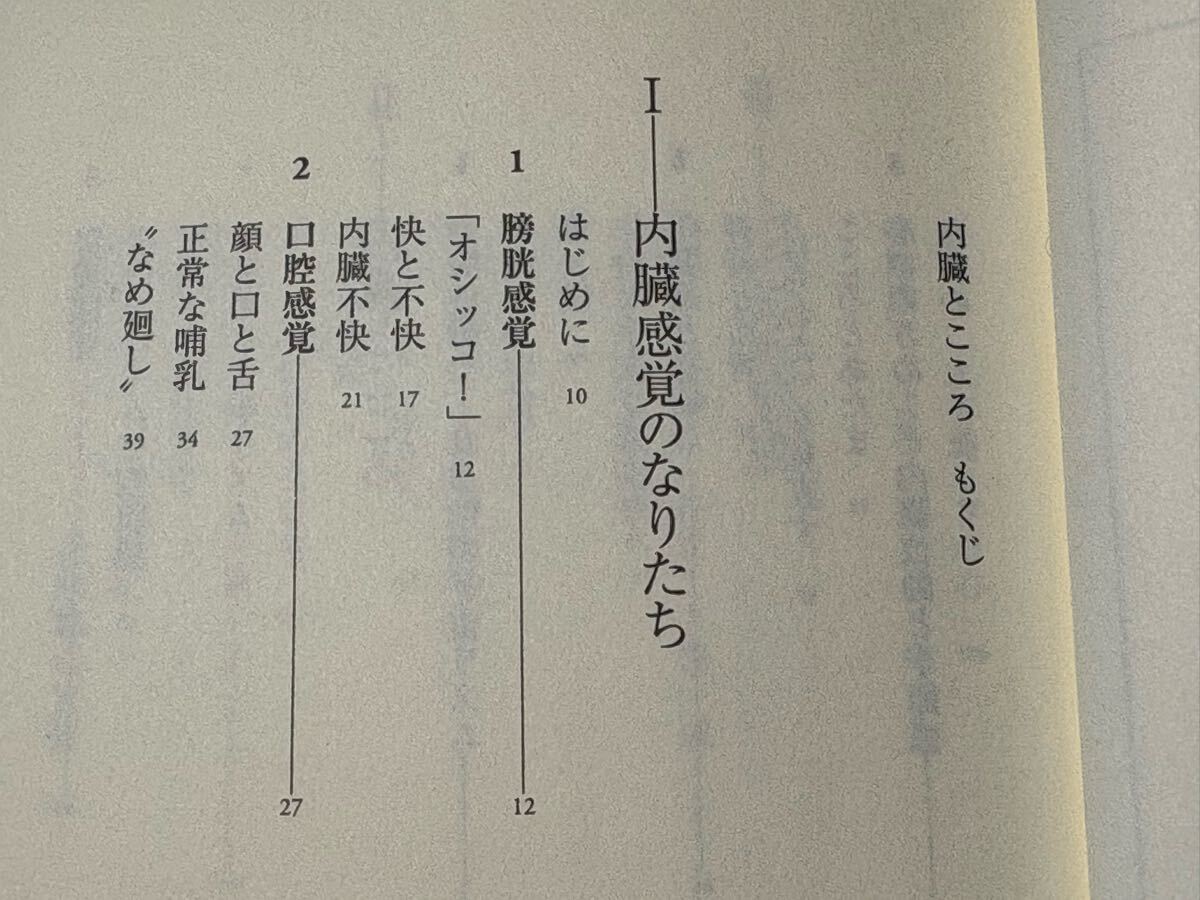 内臓とこころ　もくじ
Ⅰ──内臓感覚のなりたち
はじめに　10
1　膀胱感覚──12
「オシッコ！」　12
快と不快　17
内臓不快　21
2　口腔感覚──27
顔と口と舌　27
正常な哺乳　34
〝なめ廻し〟　39